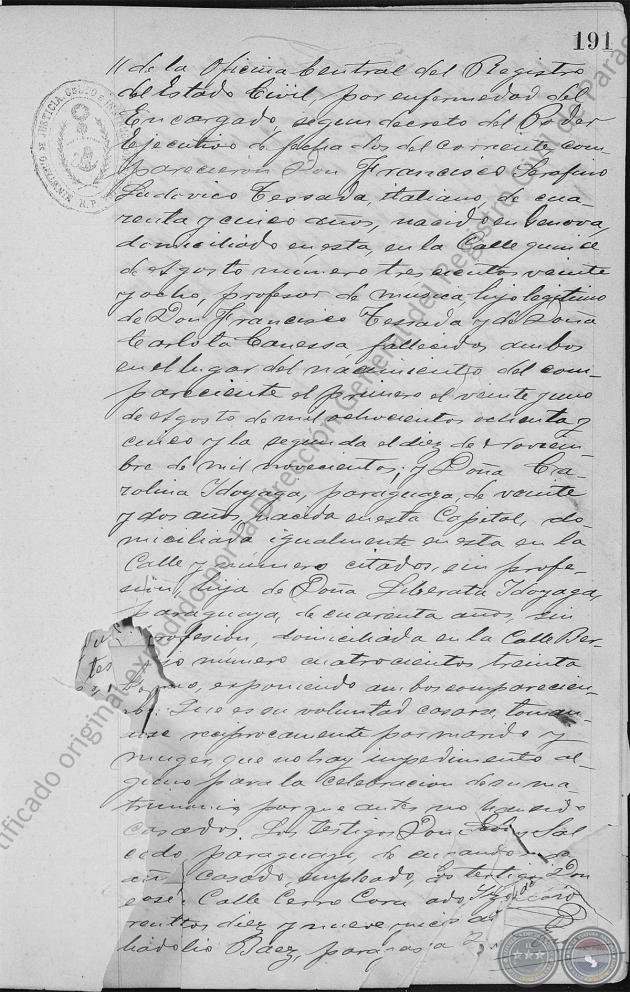 191
de la Oficina Central del Registro
del Estado Civil, por enfermedad del
Encargado, segun decreto del Poder
Ejecutivo de fecha dos del corriente com-
parecieron Don Francisco Serafino
Ludovico Tessada, italiano, de cua-
renta y cinco años, nacido en Genova,
domiciliado en esta, en la Calle quince
de Agosto número tres cientos veinte
y ocho, profesor de música, hijo legitimo
de Don Francisco Tessada y de Doña
Carlota Canessa fallecidos ambos
en el lugar del nacimiento del com-
pareciente el primero el veinte y uno
de Agosto de mil ochocientos ochenta y
cinco y la segunda el diez de Noviem-
bre de mil novecientos; y Doña Ca-
rolina Idoyaga, paraguaya, de veinte
y dos años, nacida en esta Capital, do-
miciliada igualmente en esta en la
Calle y número citados, sin profe-
sión, hija de Doña Liberata Idoyaga,
paraguaya, de cuarenta años, sin
profesión, domiciliada en la Calle Ber-
número cuatrocientos treinta
exponiendo ambos comparecien-
Que es su voluntad casarse, toman-
dose reciprocamente por marido y
muger, que no hay impedimento al-
guno para la celebracion de su ma-
trimonio, porque antes no han sido
casados. Los testigos Don Sal-
cedo, paraguayo, de
casado, empleado, Don
Calle Cerro Cora
diez y nueve
Baez, paragua
MINISTERIO DE JUSTICIA CULTO E
R. P.
tificado original expedido por la Dirección General del Registro Civil de Paras